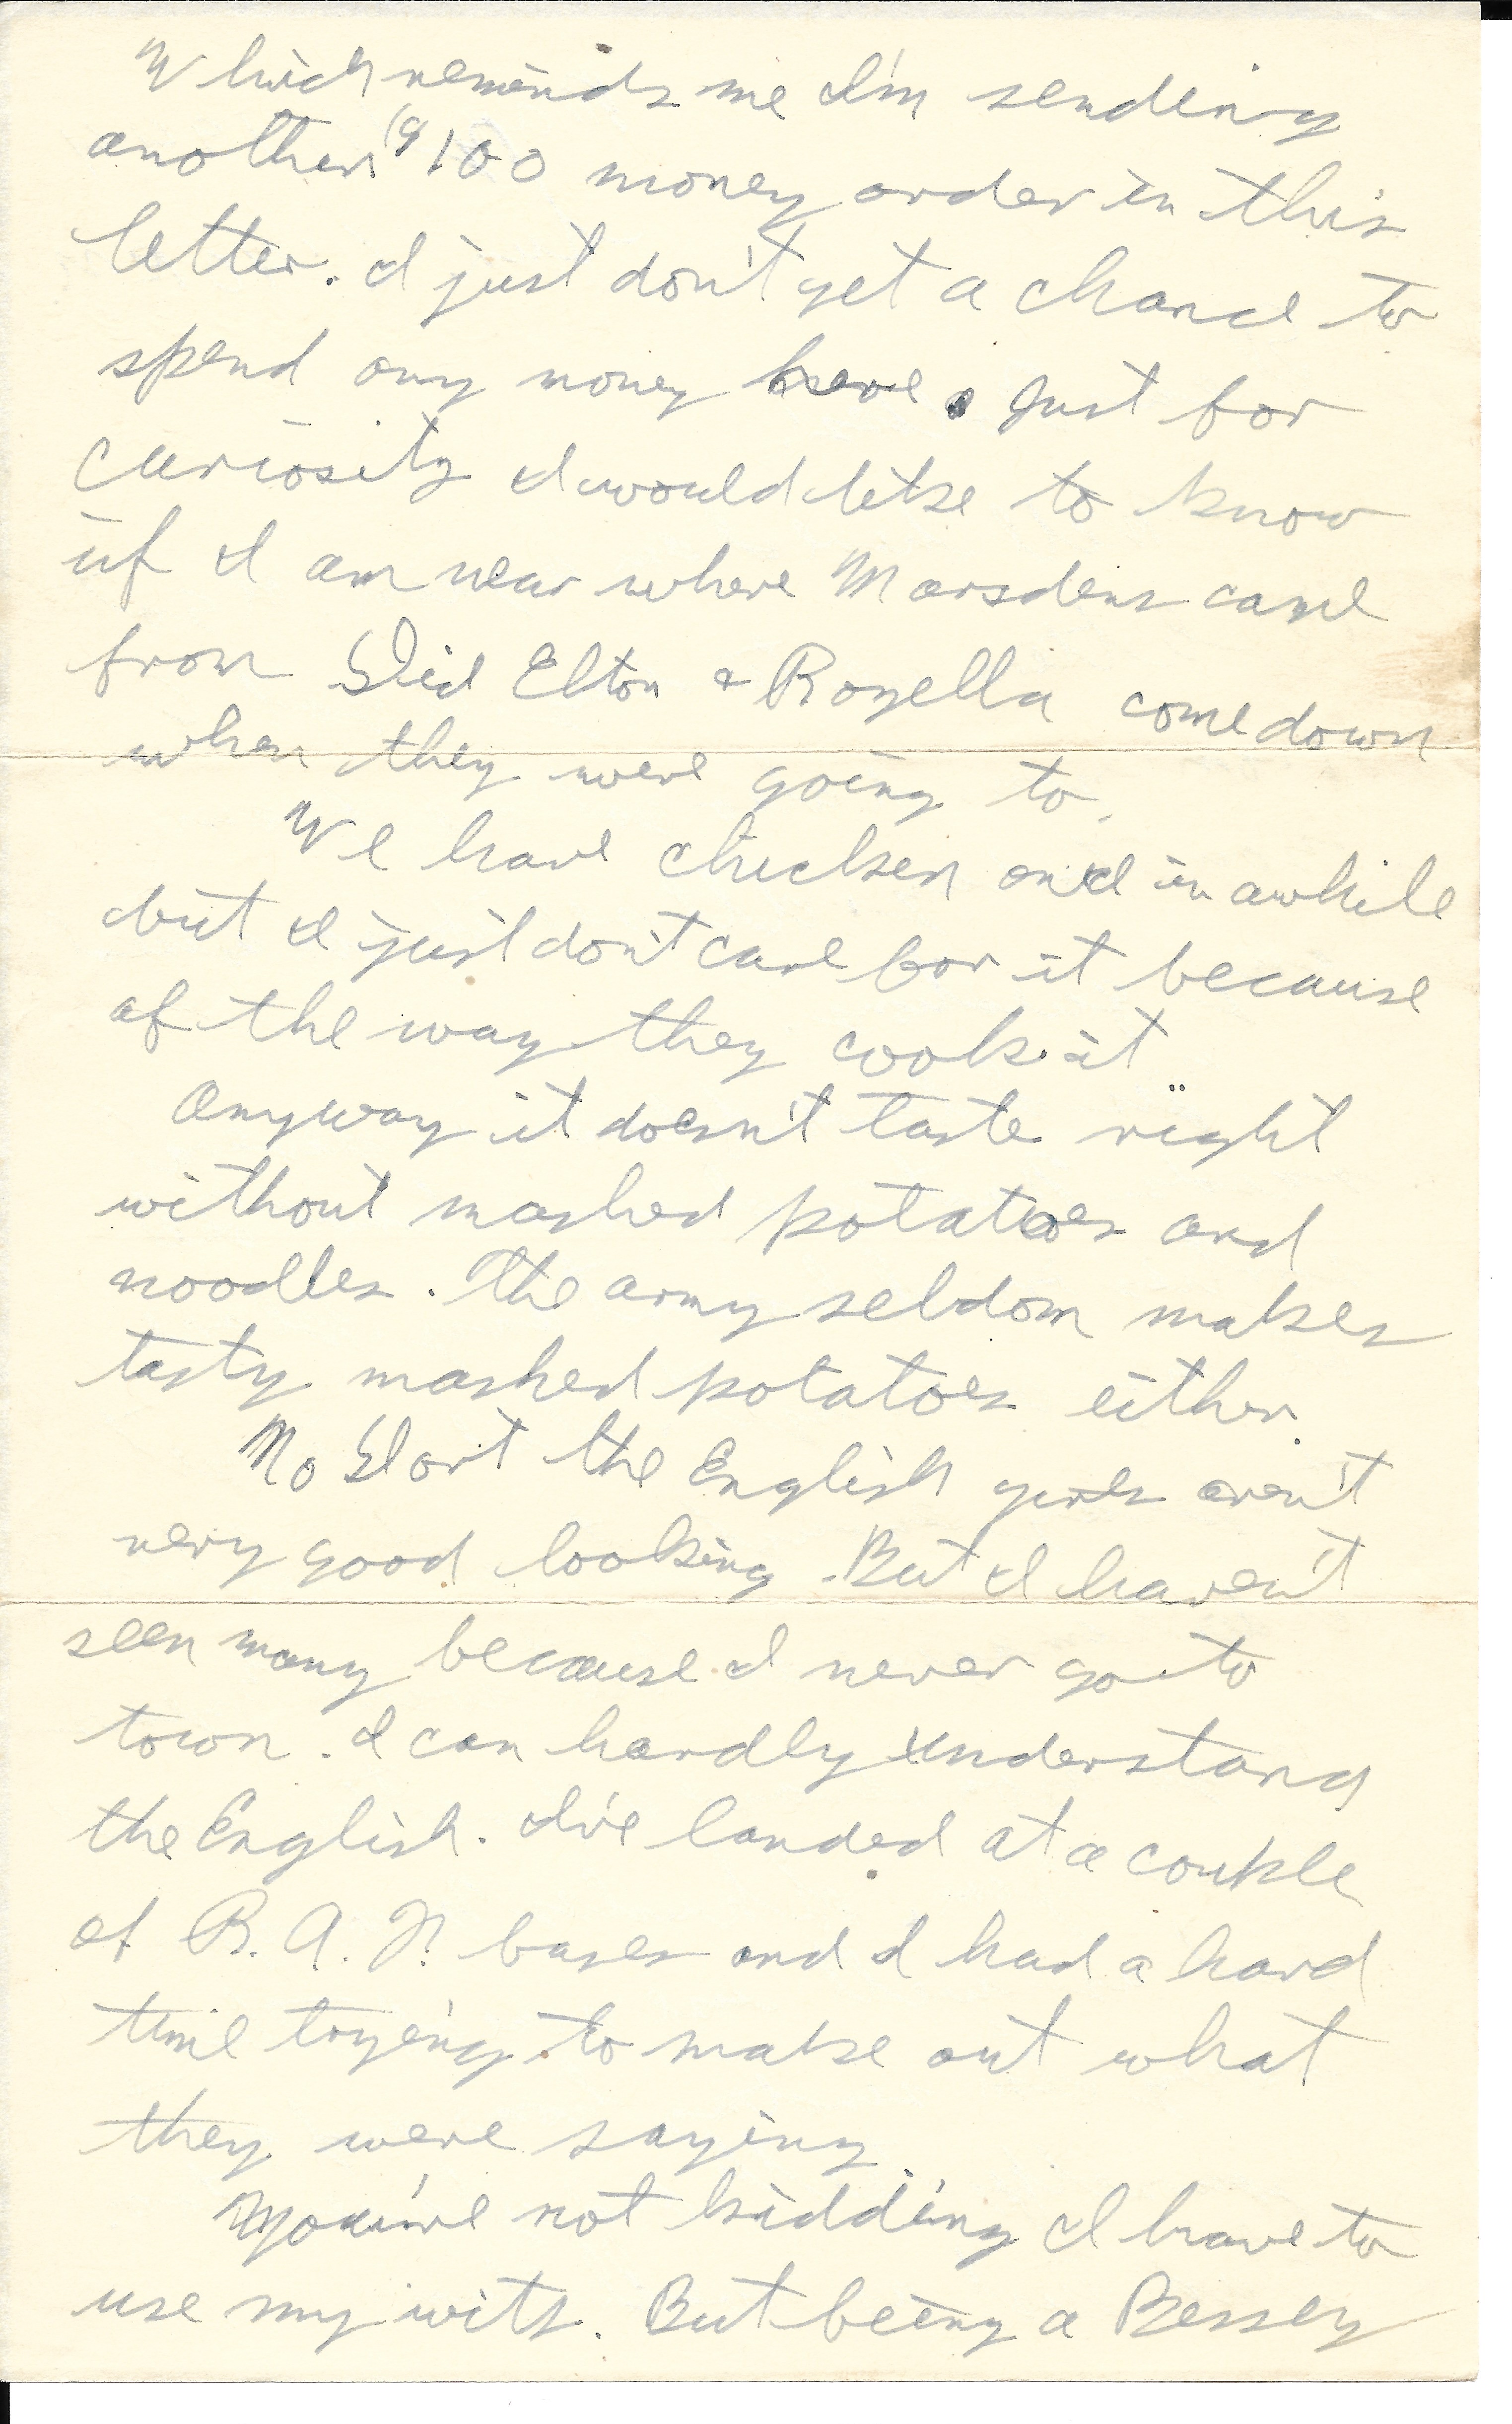 Which reminds me I'm sending
another $100 money order in this
letter. I just don't get a chance to
spend any money here. Just for
curiosity I would like to know
if I am near where Marsdens came
from Did Elton & Rozella come down
when they were going to.
We have chicken once in awhile
but I just don't care for it because
of the way they cook it.
Anyway it doesn't taste right
without mashed potatoes and
noodles. The army seldom makes
tasty mashed potatoes either.
No Dort the English girls aren't
very good looking. But I haven't
seen many because I never go to
town. I can hardly understand
the English. I've landed at a couple
of R. A. F. bases and I had a hard
time trying to make out what
they were saying
You're not kidding I have to
use my wits. But being a Bessey